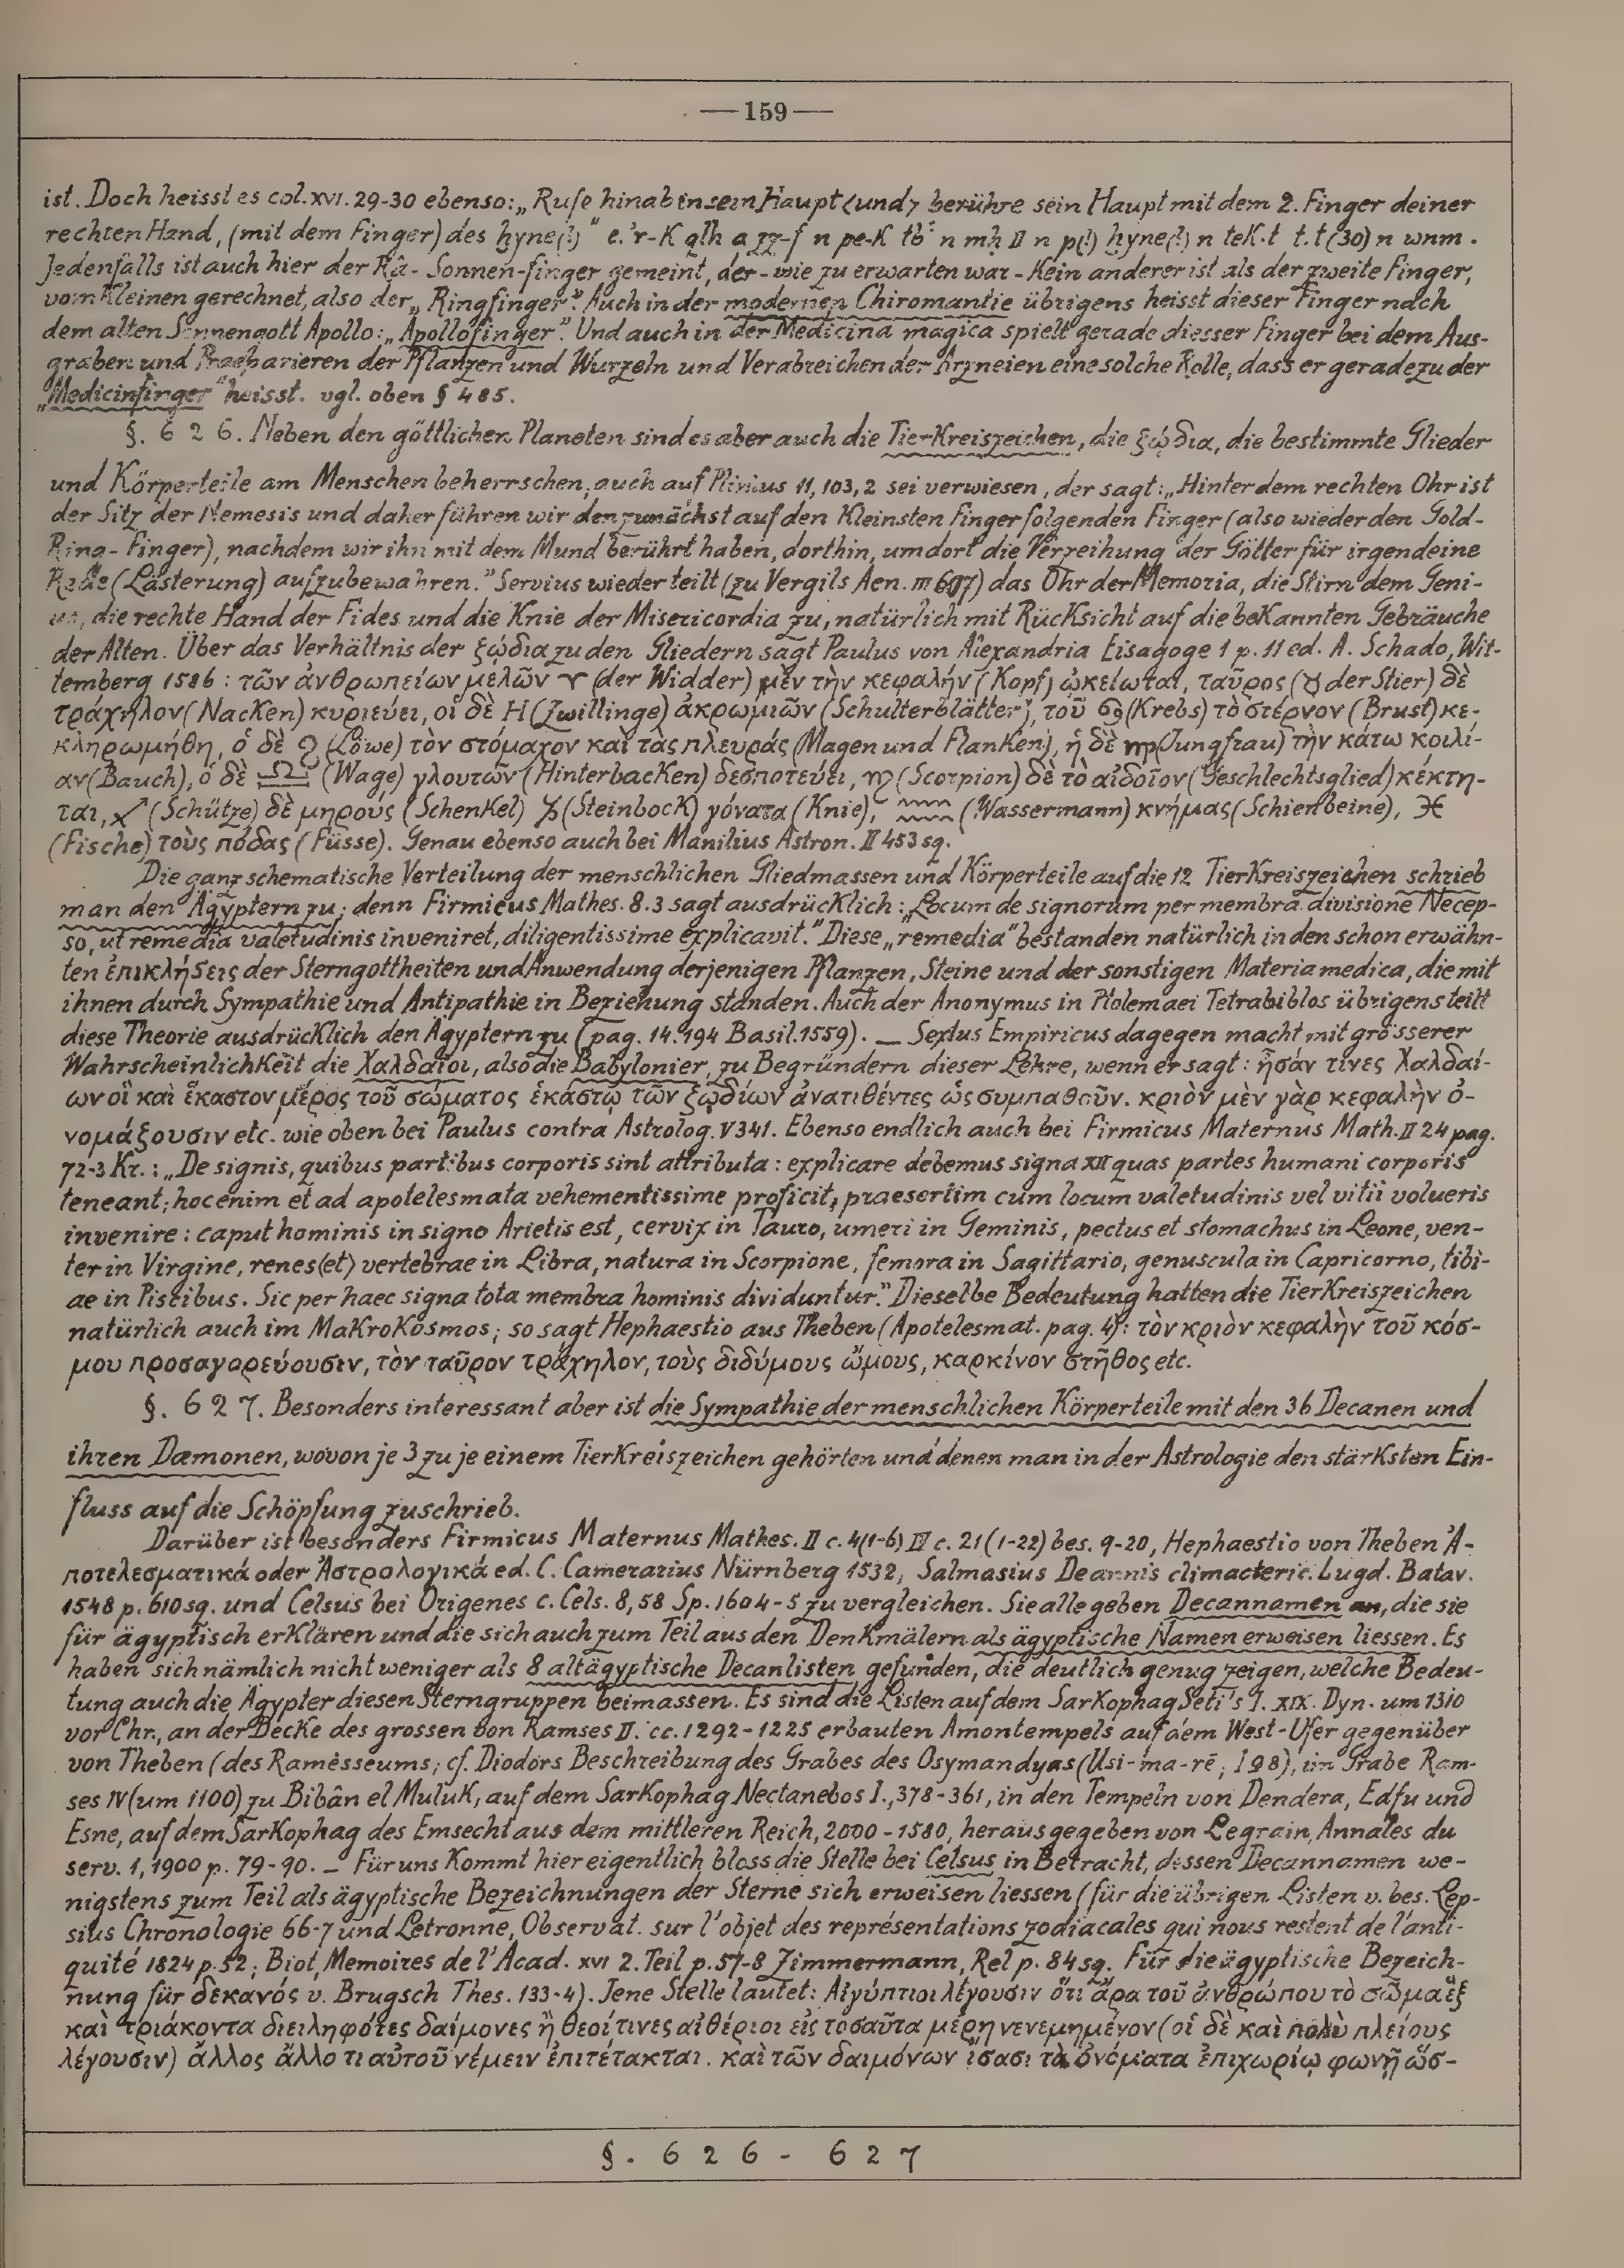 —159—
ist. Doch heisst es col. XVI. 29-30 ebenso: „Rufe hinab in sein Haupt <und> berühre sein Haupt mit dem 2. Finger deiner
rechten Hand, (mit dem Finger) des hyne(?)" e.'r-K qlh a zz-f n pe-K tb' n mḥ II n p(!) hyne(?) n teK.t t.t (30) n wnm.
Jedenfalls ist auch hier der Râ-Sonnen-finger gemeint, der-wie zu erwarten war-Kein anderer ist als der zweite Finger,
vom Kleinen gerechnet, also der „Ringfinger". Auch in der modernen Chiromantie übrigens heisst dieser Finger nach
dem alten Sonnengott Apollo: „Apollofinger". Und auch in der Medicina magica spielt gerade diesser Finger bei dem Aus-
graben und Praeparieren der Pflanzen und Wurzeln und Verabreichen der Arzneien eine solche Rolle, dass er geradezu der
„Medicinfinger" heisst. vgl. oben § 485.
§. 626. Neben den göttlichen Planeten sind es aber auch die TierKreiszeichen, die ζῴδια, die bestimmte Glieder
und Körperteile am Menschen beherrschen, auch auf Plinius 11, 103, 2 sei verwiesen, der sagt: „Hinter dem rechten Ohr ist
der Sitz der Nemesis und daher führen wir den zunächst auf den Kleinsten Finger folgenden Finger (also wieder den Gold-
Ring-Finger), nachdem wir ihn mit dem Mund berührt haben, dorthin, um dort die Verzeihung der Götter für irgendeine
Rede (Lästerung) aufzubewahren." Servius wieder teilt (zu Vergils Aen. III 607) das Ohr der Memoria, die Stirn dem Geni-
us, die rechte Hand der Fides und die Knie der Misericordia zu, natürlich mit RücKsicht auf die beKannten Gebräuche
der Alten. Über das Verhältnis der ζῴδια zu den Gliedern sagt Paulus von Alexandria Eisagoge 1 p. 11 ed. A. Schado, Wit-
temberg 1586: τῶν ἀνθρωπείων μελῶν ♈ (der Widder) μὲν τὴν κεφαλήν (Kopf) ᾠκείωται, ταῦρος (♉ der Stier) δὲ
τράχηλον (NacKen) κυριεύει, οἱ δὲ ♊ (Zwillinge) ἀκρωμιῶν (Schulterblätter), τοῦ ♋ (Krebs) τὸ στέρνον (Brust) κε-
κληρωμήθη, ὁ δὲ ♌ (Löwe) τὸν στόμαχον καὶ τὰς πλευράς (Magen und FlanKen), ἡ δὲ ♍ (Jungfrau) τὴν κάτω κοιλί-
αν (Bauch), ὁ δὲ ♎ (Wage) γλουτῶν (HinterbacKen) δεσποτεύει, ♏ (Scorpion) δὲ τὸ αἰδοῖον (Geschlechtsglied) κέκτη-
ται, ♐ (Schütze) δὲ μηρούς (SchenKel) ♑ (SteinbocK) γόνατα (Knie), ♒ (Wassermann) κνήμας (Schienbeine), ♓
(Fische) τοὺς πόδας (Füsse). Genau ebenso auch bei Manilius Astron. II 453 sq.
Die ganz schematische Verteilung der menschlichen Gliedmassen und Körperteile auf die 12 TierKreiszeichen schrieb
man den Ägyptern zu; denn Firmicus Mathes. 8.3 sagt ausdrücklich: „Locum de signorum per membra divisione Necep-
so, ut remedia valetudinis inveniret, diligentissime explicavit." Diese „remedia" bestanden natürlich in den schon erwähn-
ten ἐπικλήσεις der Sterngottheiten und Anwendung derjenigen Pflanzen, Steine und der sonstigen Materia medica, die mit
ihnen durch Sympathie und Antipathie in Beziehung standen. Auch der Anonymus in Ptolemaei Tetrabiblos übrigens teilt
diese Theorie ausdrücKlich den Ägyptern zu (pag. 14. 194 Basil. 1559). — Sextus Empiricus dagegen macht mit grösserer
WahrscheinlichKeit die Χαλδαῖοι, also die Babylonier, zu Begründern dieser Lehre, wenn er sagt: ἦσάν τινες Χαλδαί-
ων οἳ καὶ ἕκαστον μέρος τοῦ σώματος ἑκάστῳ τῶν ζῳδίων ἀνατιθέντες ὡς συμπαθοῦν. κριὸν μὲν γὰρ κεφαλὴν ὀ-
νομάζουσιν etc. wie oben bei Paulus contra Astrolog. V 341. Ebenso endlich auch bei Firmicus Maternus Math. II 24 pag.
72-3 Kr.: „De signis, quibus partibus corporis sint attributa: explicare debemus signa XII quas partes humani corporis
teneant; hoc enim et ad apotelesmata vehementissime proficit, praesertim cum locum valetudinis vel vitii volueris
invenire: caput hominis in signo Arietis est, cervix in Tauro, umeri in Geminis, pectus et stomachus in Leone, ven-
ter in Virgine, renes <et> vertebrae in Libra, natura in Scorpione, femora in Sagittario, genuscula in Capricorno, tibi-
ae in Piscibus. Sic per haec signa tota membra hominis dividuntur." Dieselbe Bedeutung hatten die TierKreiszeichen
natürlich auch im MaKroKosmos; so sagt Hephaestio aus Theben (Apotelesmat. pag. 4): τὸν κριὸν κεφαλὴν τοῦ κόσ-
μου προσαγορεύουσιν, τὸν ταῦρον τράχηλον, τοὺς διδύμους ὤμους, καρκίνον στῆθος etc.
§. 627. Besonders interessant aber ist die Sympathie der menschlichen Körperteile mit den 36 Decanen und
ihren Dæmonen, wovon je 3 zu je einem TierKreiszeichen gehörten und denen man in der Astrologie den stärKsten Ein-
fluss auf die Schöpfung zuschrieb.
Darüber ist besonders Firmicus Maternus Mathes. II c. 4 (1-6) IV c. 21 (1-22) bes. 9-20, Hephaestio von Theben Ἀ-
ποτελεσματικά oder Ἀστρολογικά ed. C. Camerarius Nürnberg 1532, Salmasius De annis climacteric. Lugd. Batav.
1548 p. 610 sg. und Celsus bei Origenes c. Cels. 8, 58 Sp. 1604-5 zu vergleichen. Sie alle geben Decannamen an, die sie
für ägyptisch erKlären und die sich auch zum Teil aus den DenKmälern als ägyptische Namen erweisen liessen. Es
haben sich nämlich nicht weniger als 8 altägyptische Decanlisten gefunden, die deutlich genug zeigen, welche Bedeu-
tung auch die Ägypter diesen Sterngruppen beimassen. Es sind die Listen auf dem SarKophag Seti's I. XIX. Dyn. um 1310
vor Chr., an der Decke des grossen von Ramses II. cc. 1292-1225 erbauten Amontempels auf dem West-Ufer gegenüber
von Theben (des Ramesseums; cf. Diodors Beschreibung des Grabes des Osymandyas (Usi-ma-rē, 198), im Grabe Ram-
ses IV (um 1100) zu Bibân el MuluK, auf dem SarKophag Nectanebos I., 378-361, in den Tempeln von Dendera, Edfu und
Esne, auf dem SarKophag des Emsecht aus dem mittleren Reich, 2000-1580, herausgegeben von Legrain, Annales du
serv. 1, 1900 p. 79-90. — Für uns Kommt hier eigentlich bloss die Stelle bei Celsus in Betracht, dessen Decannamen we-
nigstens zum Teil als ägyptische Bezeichnungen der Sterne sich erweisen liessen (für die übrigen Listen v. bes. Lep-
sius Chronologie 66-7 und Letronne, Observat. sur l'objet des représentations zodiacales qui nous restent de l'anti-
quité 1824 p. 52; Biot, Memoires de l'Acad. XVI 2. Teil p. 57-8 Zimmermann, Rel p. 84 sg. Für die ägyptische Bezeich-
nung für δεκανός v. Brugsch Thes. 133-4). Jene Stelle lautet: Αἰγύπτιοι λέγουσιν ὅτι ἄρα τοῦ ἀνθρώπου τὸ σῶμα ἓξ
καὶ τριάκοντα διειληφότες δαίμονες ἢ θεοί τινες αἰθέριοι εἰς τοσαῦτα μέρη νενεμημένον (οἱ δὲ καὶ πολὺ πλείους
λέγουσιν) ἄλλος ἄλλο τι αὐτοῦ νέμειν ἐπιτέτακται. καὶ τῶν δαιμόνων ἴσασι τὰ ὀνόματα ἐπιχωρίῳ φωνῇ ὥσ-
§. 626-627